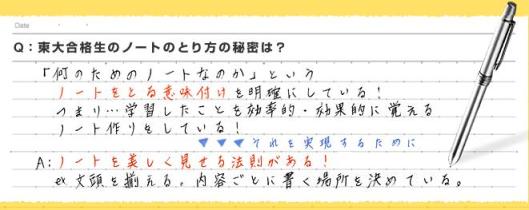 Date
Q：東大合格生のノートのとり方の秘密は？
「何のためのノートなのか」という
ノートをとる意味付けを明確にしている！
つまり…学習したことを効率的・効果的に覚える
ノート作りをしている！
▼▼▼それを実現するために
A:ノートを美しく見せる法則がある！
ex 文頭を揃える。内容ごとに書く場所を決めている。